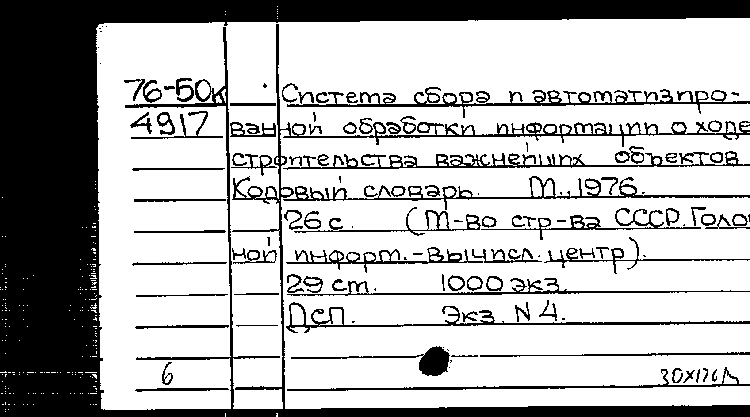 76-50к Система сбора и автоматизиро-
4917 ванной обработки информации о ходе
строительства важнейших объектов
Кодовый словарь. М., 1976.
26 с. (М-во стр-ва СССР. Голов
ной информ.-вычисл. центр).
29 см. 1000 экз.
Дсп. Экз. N 4.
6